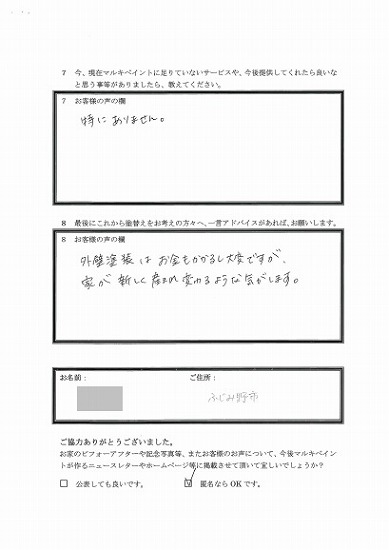 7 今、現在マルキペイントに足りていないサービスや、今後提供してくれたら良いな
と思う事等がありましたら、教えてください。
7 お客様の声の欄
特にありません。
8 最後にこれから塗替えをお考えの方々へ、一言アドバイスがあれば、お願いします。
8 お客様の声の欄
外壁塗装はお金もかかるし大変ですが、
家が新しく産まれ変わるような気がします。
お名前：
ご住所：
ふじみ野市
ご協力ありがとうございました。
お家のビフォーアフターや記念写真等、またお客様のお声について、今後マルキペイン
トが作るニュースレターやホームページ等に掲載させて頂いて宜しいでしょうか？
□ 公表しても良いです。
☑ 匿名ならOKです。